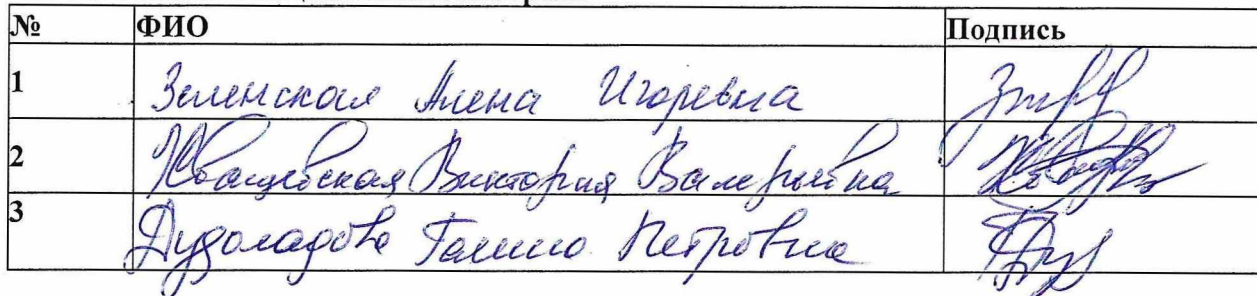 № ФИО Подпись
1 Зеленская Алена Игоревна
2 Квашевская Виктория Валерьевна
3 Дудоладова Галина Петровна